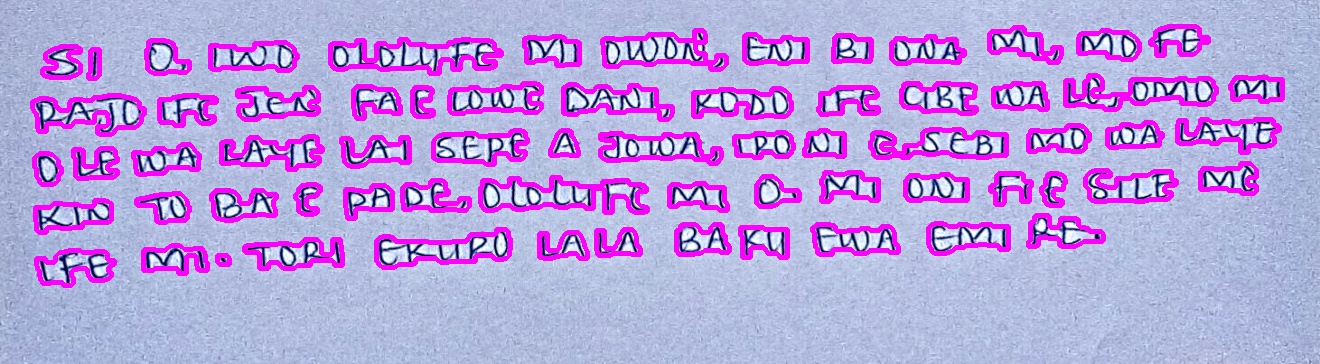 SI O, IWO OLOLUFE MI OWON, ENI BI ONA MI, MO FE
RAJO IFE JEN FA E LOWE DANI, KODO IFE GBE WA LE, OMO MI
O LE WA LAYE LAI SEPE A JOWA, IRO NI E, SEBI MO WA LAYE
KIN TO BA E PADE, OLOLUFE MI O. MI ONI FI E SILE ME
IFE MI. TORI EKURO LALA BAKU EWA EMI RE.